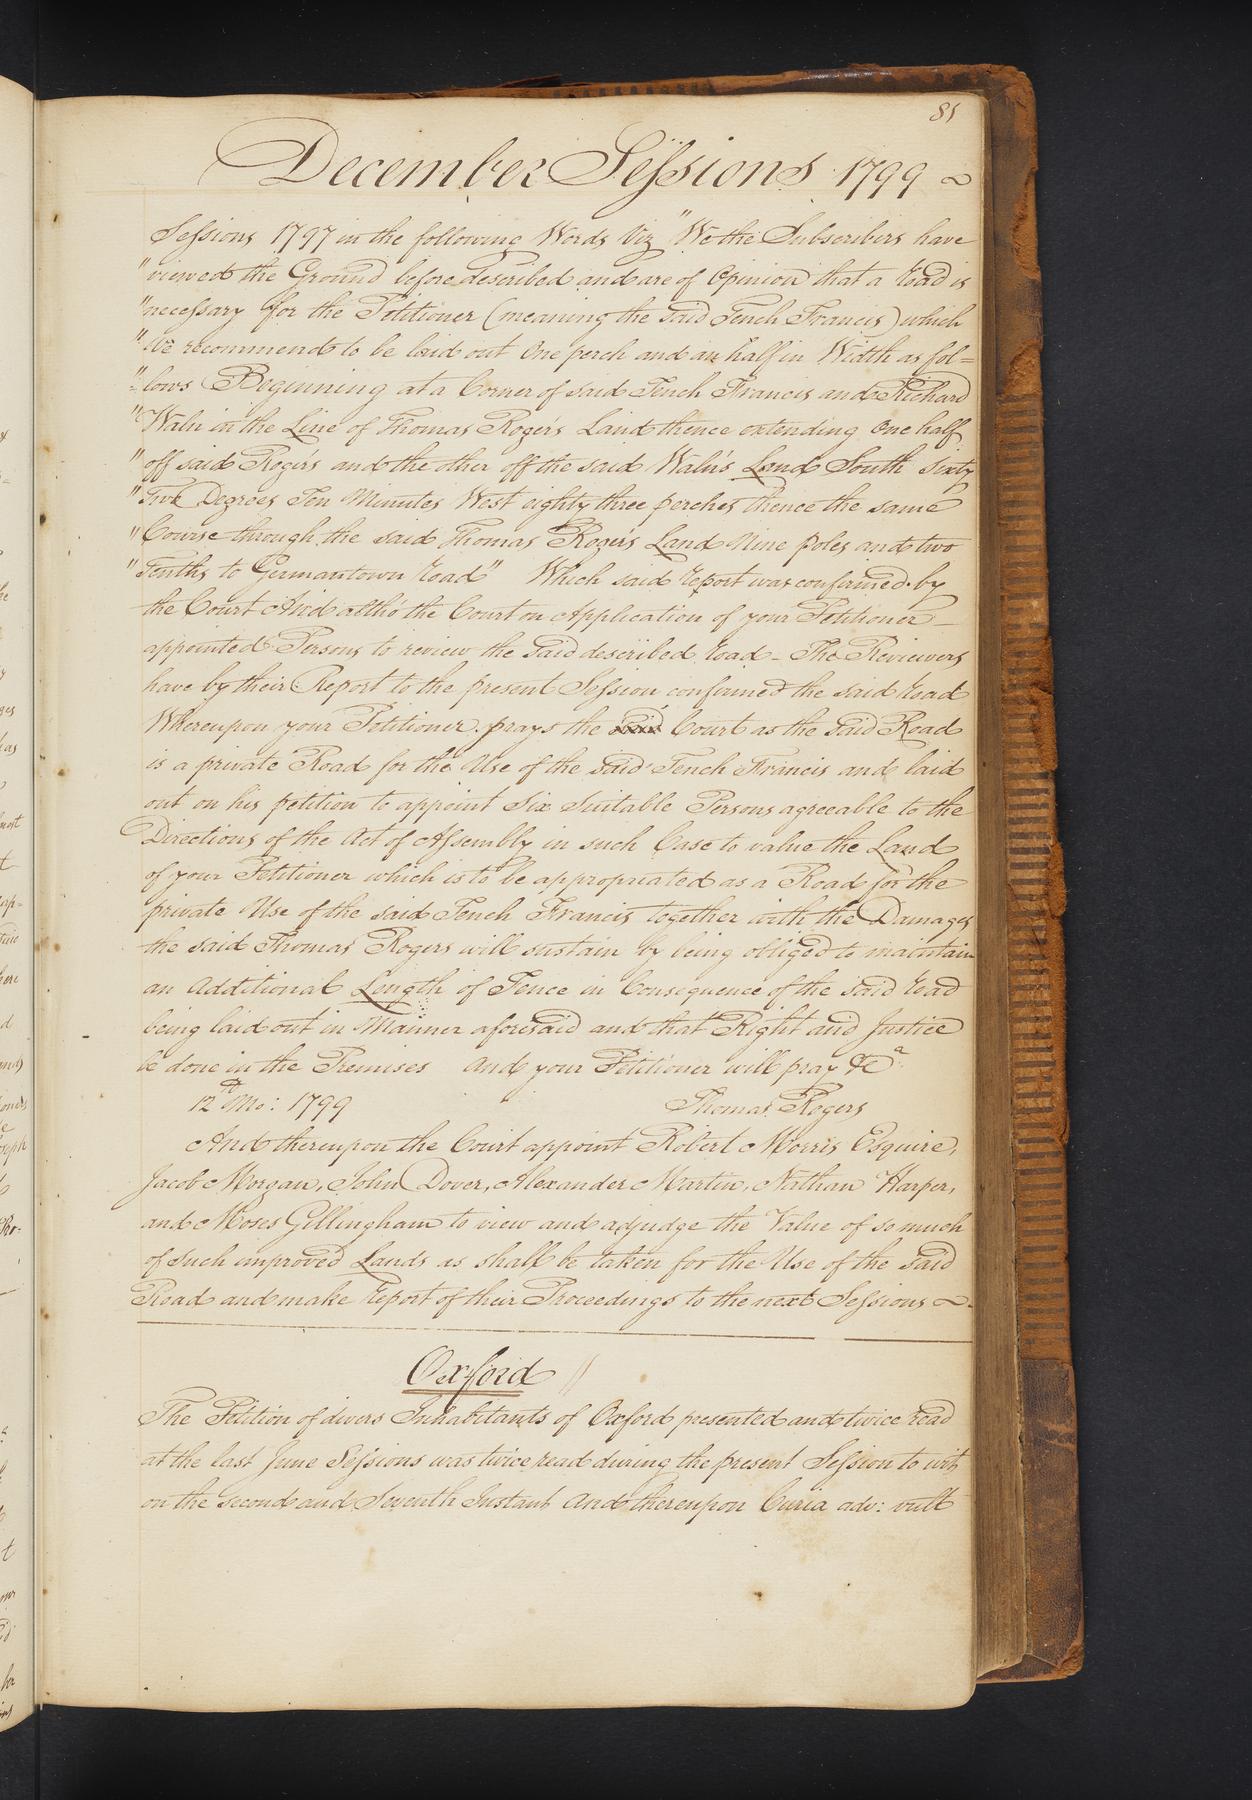 81
December Sessions 1799
Sessions 1797 in the following Words Viz "We the Subscribers have
"viewed the Ground before described and are of Opinion that a road is
"necessary for the Petitioner (meaning the said Tench Francis) which
"We recommend to be laid out One perch and an half in Width as fol=
"lows Beginning at a Corner of said Tench Francis and Richard
"Waln in the Line of Thomas Roger's Land thence extending One half
"off said Roger's and the other off the said Waln's Land South sixty
"Two Degrees Ten Minutes West eighty three perches thence the same
"Course through the said Thomas Roger's Land Nine poles and two
"Tenths to Germantown road" Which said report was confirmed by
the Court And altho' the Court on Application of your Petitioner
appointed Persons to review the said described road - The Reviewers
have by their Report to the present Session confirmed the said road
Whereupon your Petitioner prays the Court as the said Road
is a private Road for the Use of the said Tench Francis and laid
out on his petition to appoint Six Suitable Persons agreeable to the
Directions of the Act of Assembly in such Case to value the Land
of your Petitioner which is to be appropriated as a Road for the
private Use of the said Tench Francis together with the Damages
the said Thomas Rogers will sustain by being obliged to maintain
an Additional Length of Fence in Consequence of the said road
being laid out in Manner aforesaid and that Right and Justice
be done in the Premises And your Petitioner will pray &c.a
12th Mo: 1799 Thomas Rogers
And thereupon the Court appoint Robert Morris Esquire,
Jacob Morgan, John Dover, Alexander Martin, Nathan Harper,
and Moses Gillingham to view and adjudge the Value of so much
of such improved Lands as shall be taken for the Use of the said
Road and make report of their Proceedings to the next Sessions
Oxford //
The Petition of divers Inhabitants of Oxford presented and twice read
at the last June Sessions was twice read during the present Session to wit,
on the second and Seventh Instant And thereupon Curia adv: vult